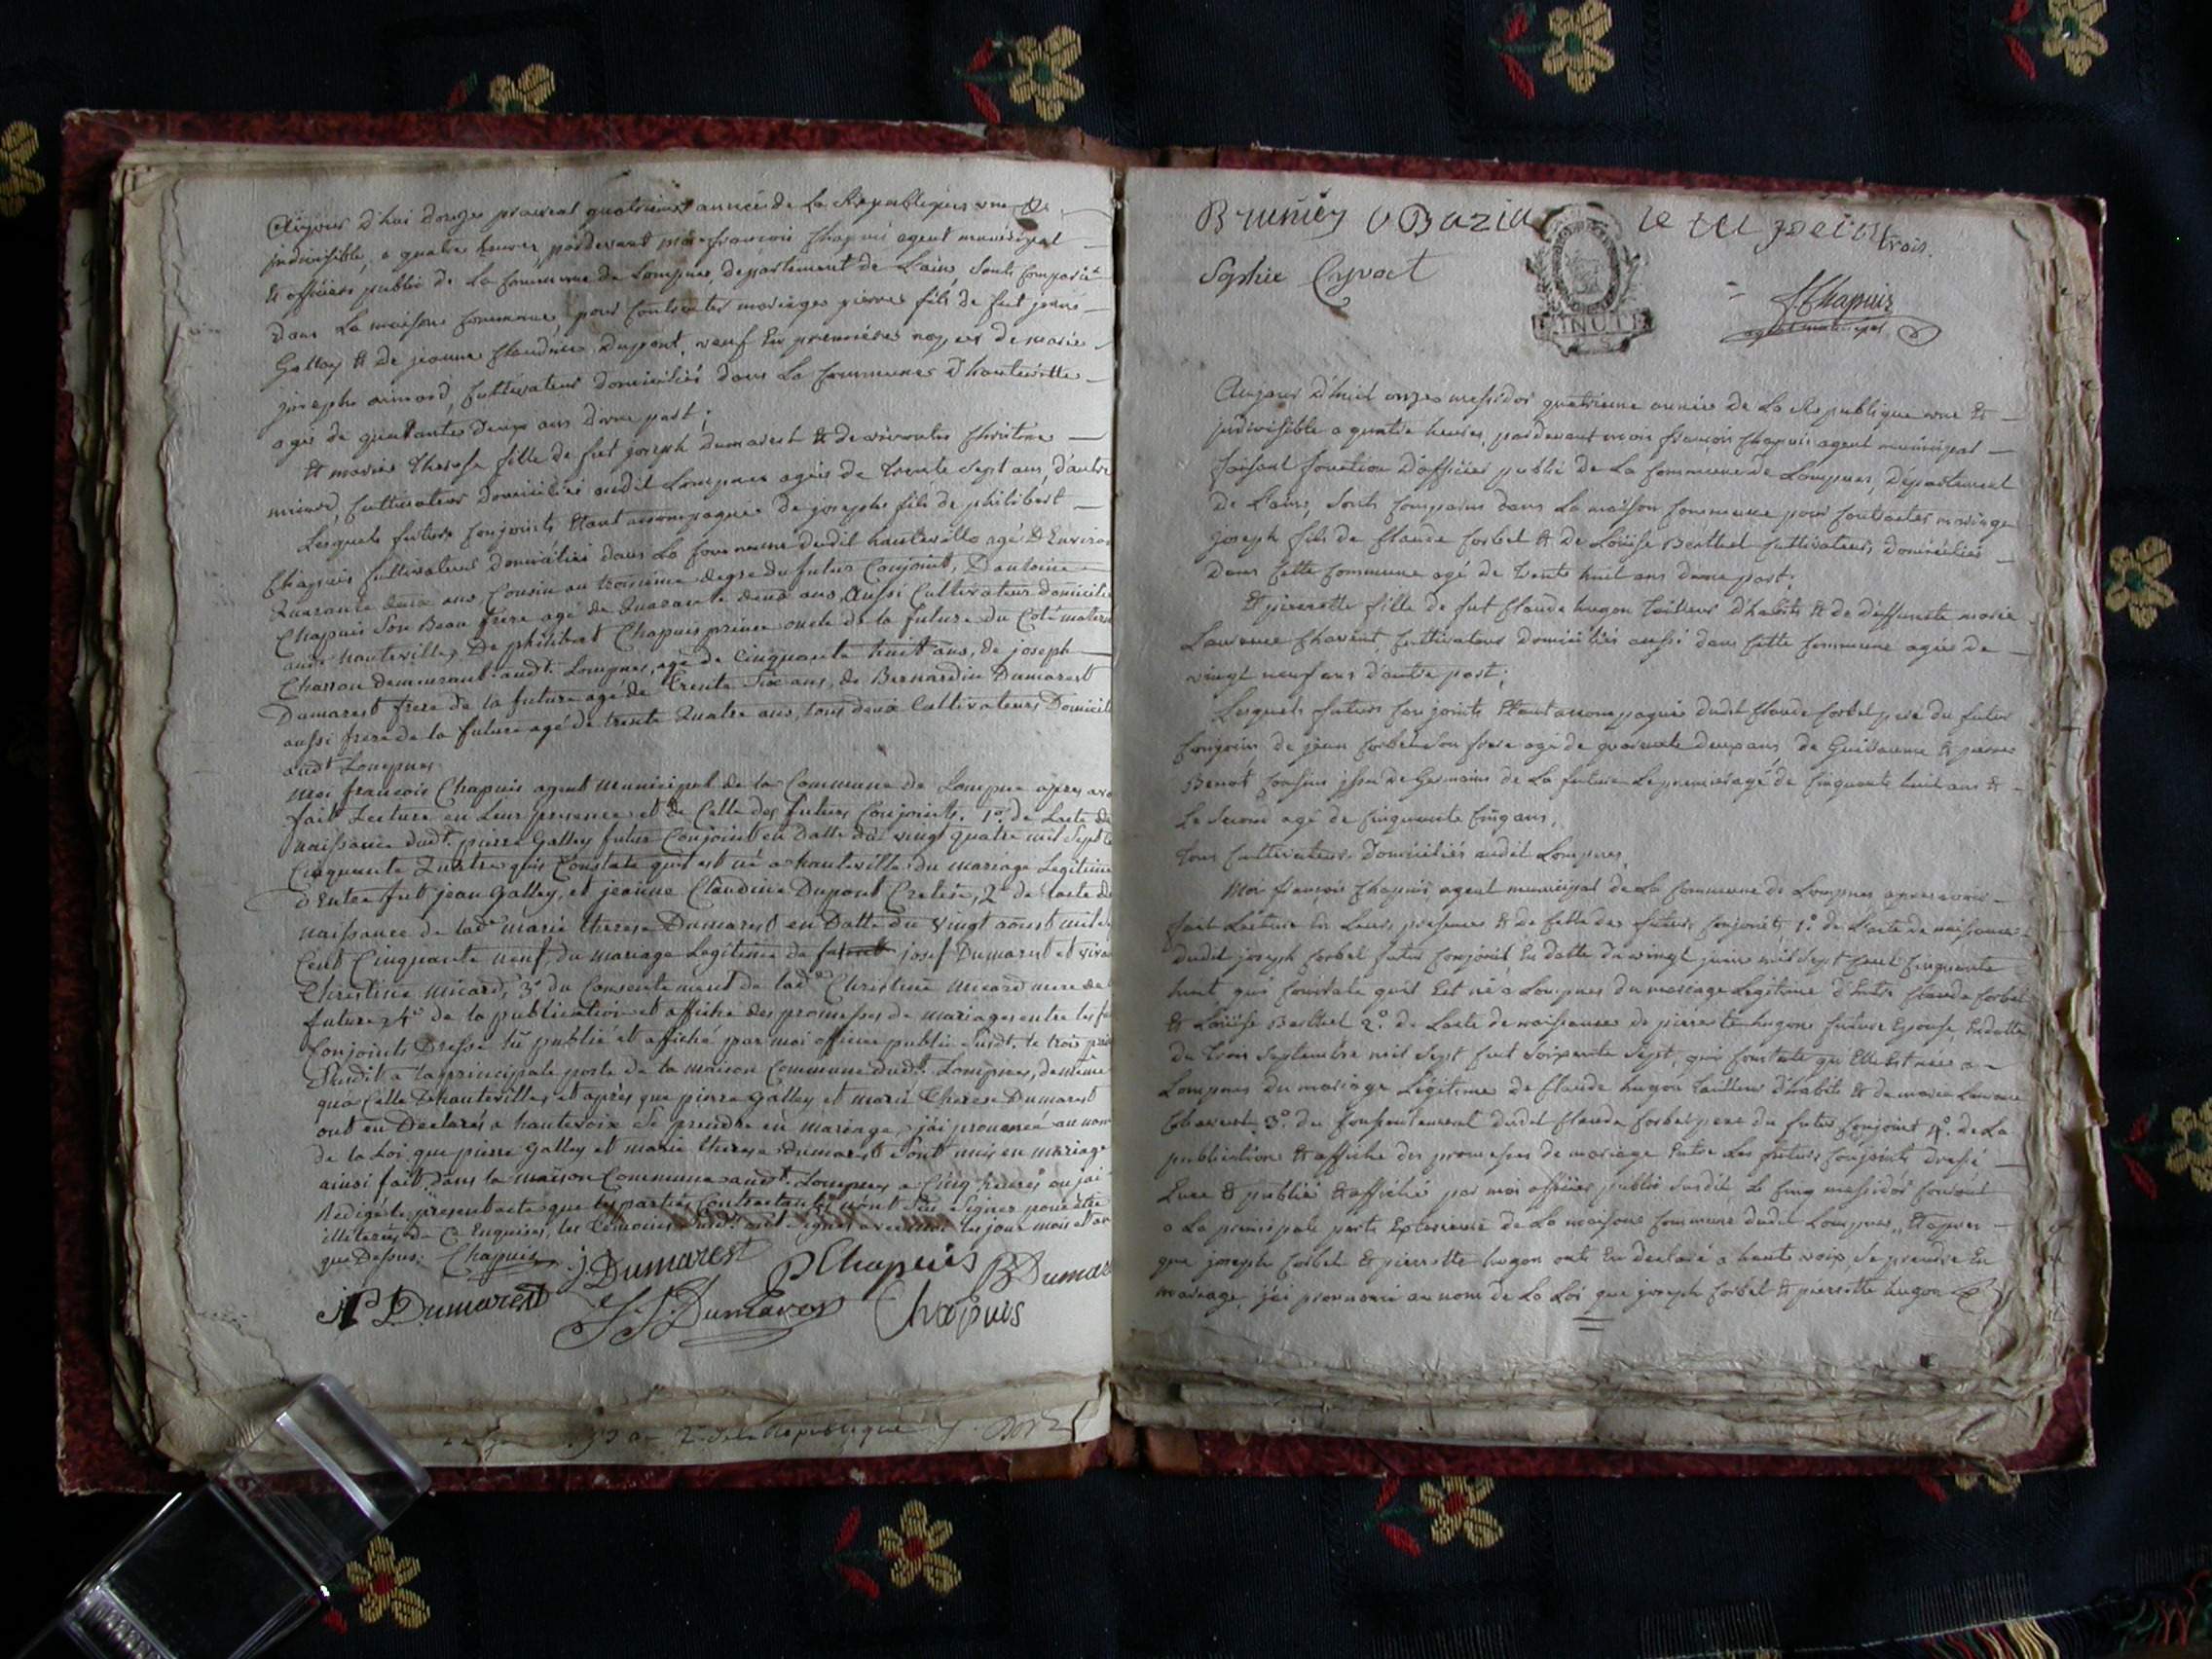 Aujour d'hui douze praireal quatrieme année de La Republique une &
indivisible, a quatre heures, pardevant moi francois Chapuis agent municipal
& officier public de La Commune de Lompnes, departement de Lain, Sont Comparu
dans La maison Commune, pour Contracter mariage pierre fils de fut jean
Galley & de jeanne Claudine Dupont, veuf En premieres noyces de marie
josephe domicilié dans La Commune d'hauteville
agé de quarante deux ans d'une part;
Et marie therese fille de fut joseph dumarest & de vivante Christine
Cultivateur domiciliée audit Lompnes agée de trente Sept ans, d'autre
Lesquels futurs Conjoints Etant accompagnés de joseph fils de philibert
Chapuis Cultivateur domicilié dans La Commune dudit hauteville agé d'Environ
Quarante deux ans, Cousin au troisieme degre du futur Conjoint, D'antoine
Chapuis Son Beau frere agé de Quarante deux ans, Aussi Cultivateur domicilié
audt hauteville, De philibert Chapuis oncle de la future du Coté matern
Charron demeurant audt. Lompnes, agé de Cinquante huit ans, de joseph
Dumarest frere de la future agé de trente Six ans, de Bernardin Dumarest
aussi frere de la future agé de trente Quatre ans, tous deux Cultivateurs Domicil
audt Lompnes
moi francois Chapuis agent municipal de la Commune de Lompne apres avo
fait Lecture en Leur presence et de Celle des futurs Conjoints. 1º. de Lacte de
naissance dudt. pierre Galley futur Conjoint en datte du vingt quatre mil Sept C
Cinquante Quatre qui Constate quil est né a hauteville du mariage Legitime
d'Entre fut jean Galley, et jeanne Claudine Dupont 2º de Lacte de
naissance de ladte marie therese Dumarest en Datte du vingt aoust mil
Cent Cinquante neuf, du mariage Legitime de josef Dumarest et viva
Christine micard, 3º du Consentement de lade Christine micard mere de
future 4º de la publication et affiche des promesses de mariages entre les fu
Conjoints Dressé Lû publié et affiché par moi officier public Susdt. le trois
Susdit a la principale porte de la maison Commune dudt. Lompnes, de meme
qua Celle d'hauteville, et après que pierre Galley et marie therese Dumarest
ont eu Declarés a hautevoix Se prendre en mariage, jai prononcé au nom
de la Loi, que pierre Galley et marie therese dumarest Sont unis en mariage
ainsi fait dans la maison Commune audt. Lompnes a Cinq heures ou jai
Redigé le present acte que les parties Contractantes n'ont Sçu Signer pour être
illiterés De Ce Enquises, les temoins Susdt. ont Signés avec moi les jour mois et an
que Dessus. Chapuis j: Dumarest P Chapuis B Dumar
Dumarest J J Dumarest Chapuis
2e de la Republique
Bruniéy Bazin le
trois.
Sophie
F Chapuis
agent municipal
MINUTE
Aujour d'huit onze messidor quatrieme année de La Republique une &
indivisible a quatre heures, pardevant moi françois Chapuis agent municipal
faisant fonction d'officier public de La Commune de Lompnes, departement
de Lain, Sont Comparus dans La maison Commune pour Contracter mariage
joseph fils de Claude Corbet & de Loüise Berthet Cultivateurs, domiciliés
dans Cette Commune agé de trente huit ans d'une part;
Et pierrette fille de fut Claude hugon tailleur d'habits & de deffuncte marie
Laurence Charvet, Cultivateur domiciliés aussi dans Cette Commune agée de
vingt neuf ans d'autre part;
Lesquels futurs Conjoints Etant accompagnés dudit Claude Corbet pere du futur
Conjoint, de jean Corbet Son frere agé de quarante deux ans, de Guillaume & pierre
Benot Cousins issu de Germains de La future Le premier agé de Cinquante huit ans &
Le Second agé de Cinquante Cinq ans,
tous Cultivateurs domiciliés audit Lompnes,
Moi françois Chapuis agent municipal de La Commune de Lompnes apres avoir
fait Lecture En Leurs presence & de Celle des futurs Conjoints 1º. de L'acte de naissance
dudit joseph Corbet futur Conjoint En datte du vingt juin mil Sept Cent Cinquante
huit qui Constate quil Est né a Lompnes du mariage Legitime d'Entre Claude Corbet
& Loüise Berthet 2º. de Lacte de naissance de pierrette hugon future Epouse, En datte
du trois Septembre mil Sept Cent Soixante Sept, qui Constate qu'Elle Est née a
Lompnes du mariage Légitime de Claude hugon tailleur d'habits & de marie Laurence
Charvet. 3º. du Consentement dudit Claude Corbet pere du futur Conjoint 4º. de La
publication & affiche des promesses de mariage Entre Les futurs Conjoints dressé
Luee & publiée & affichée par moi officier public Susdit Le Cinq messidor Courant
a La principale porte Exterieure de La maison Commune dudit Lompnes, Et apres
que joseph Corbet & pierrette hugon onts Eu declaré a haute voix Se prendre En
mariage, jai prononcé au nom de La Loi que joseph Corbet & pierrette hugon